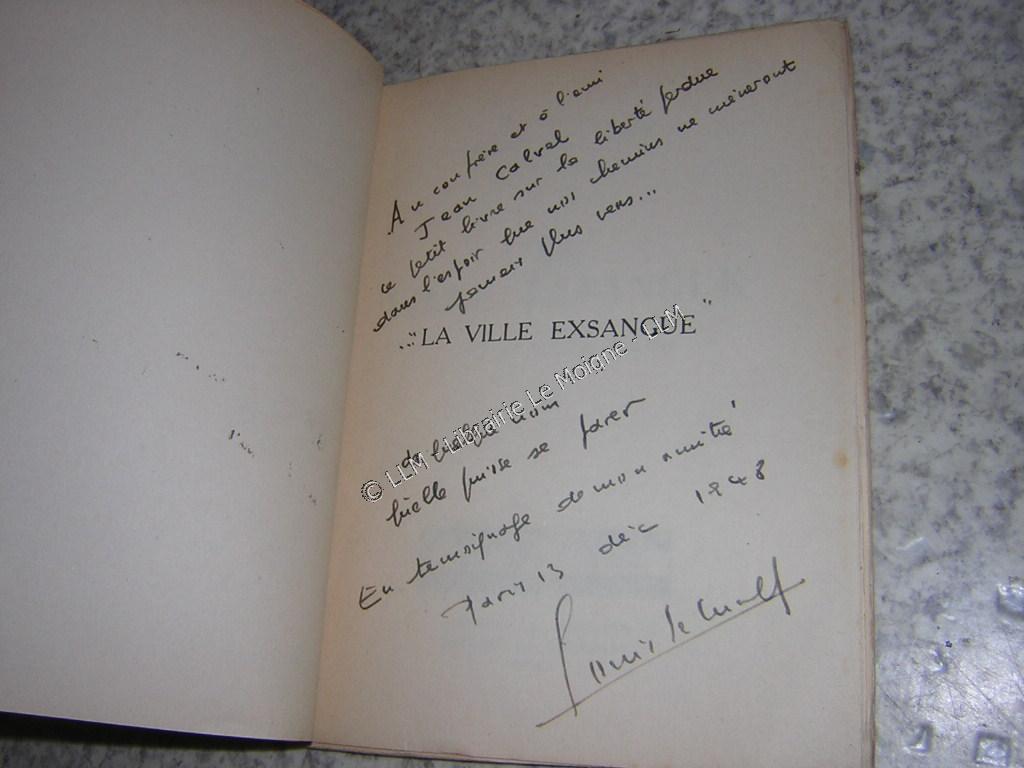 Au confrère et à l'ami
Jean Calvel
ce petit livre sur la liberté perdue
dans l'espoir que nos chemins ne mèneront
jamais plus vers...
..."LA VILLE EXSANGUE"
de quelque nom
qu'elle puisse se parer
En temoignage de mon amitié
Paris 13 déc 1948
© LLM - Librairie Le Moigne - LLM